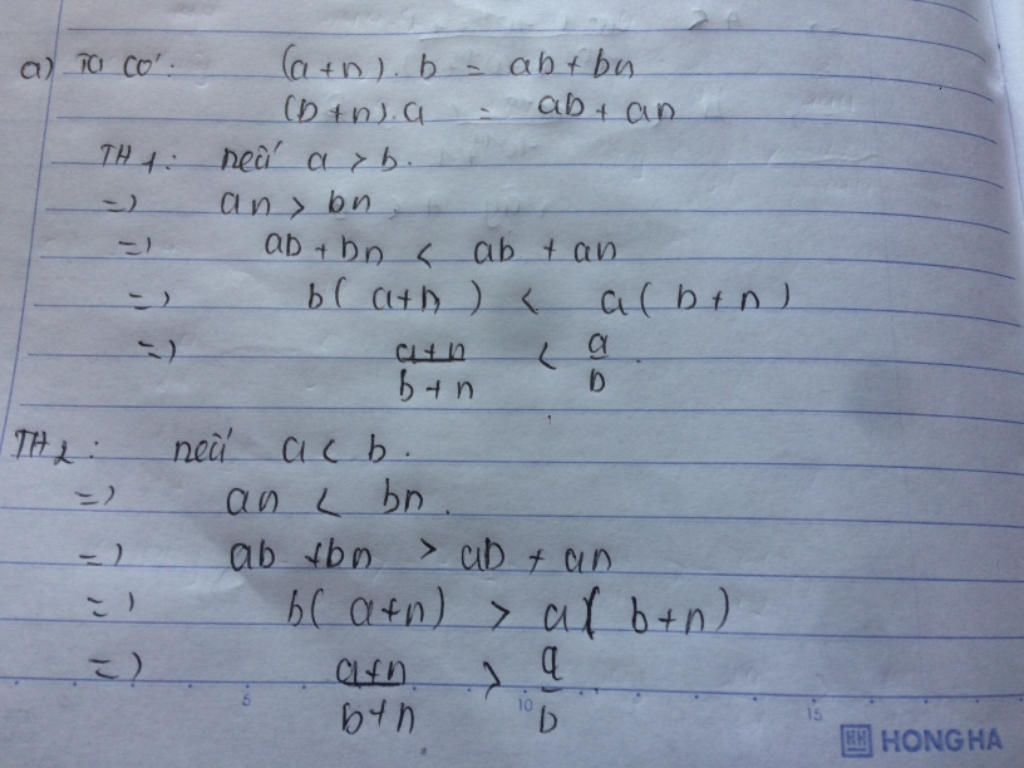 a) Ta có: (a+n).b = ab+bn
(b+n).a = ab+an
TH1: nếu a > b.
=> an > bn
=> ab+bn < ab + an
=> b( a+n ) < a( b+n )
=> a+n/b+n < a/b.
TH2: nếu a < b.
=> an < bn.
=> ab +bn > ab + an
=> b( a+n) > a( b+n)
=> a+n/b+n > a/b
5 10 15
HH HONG HA